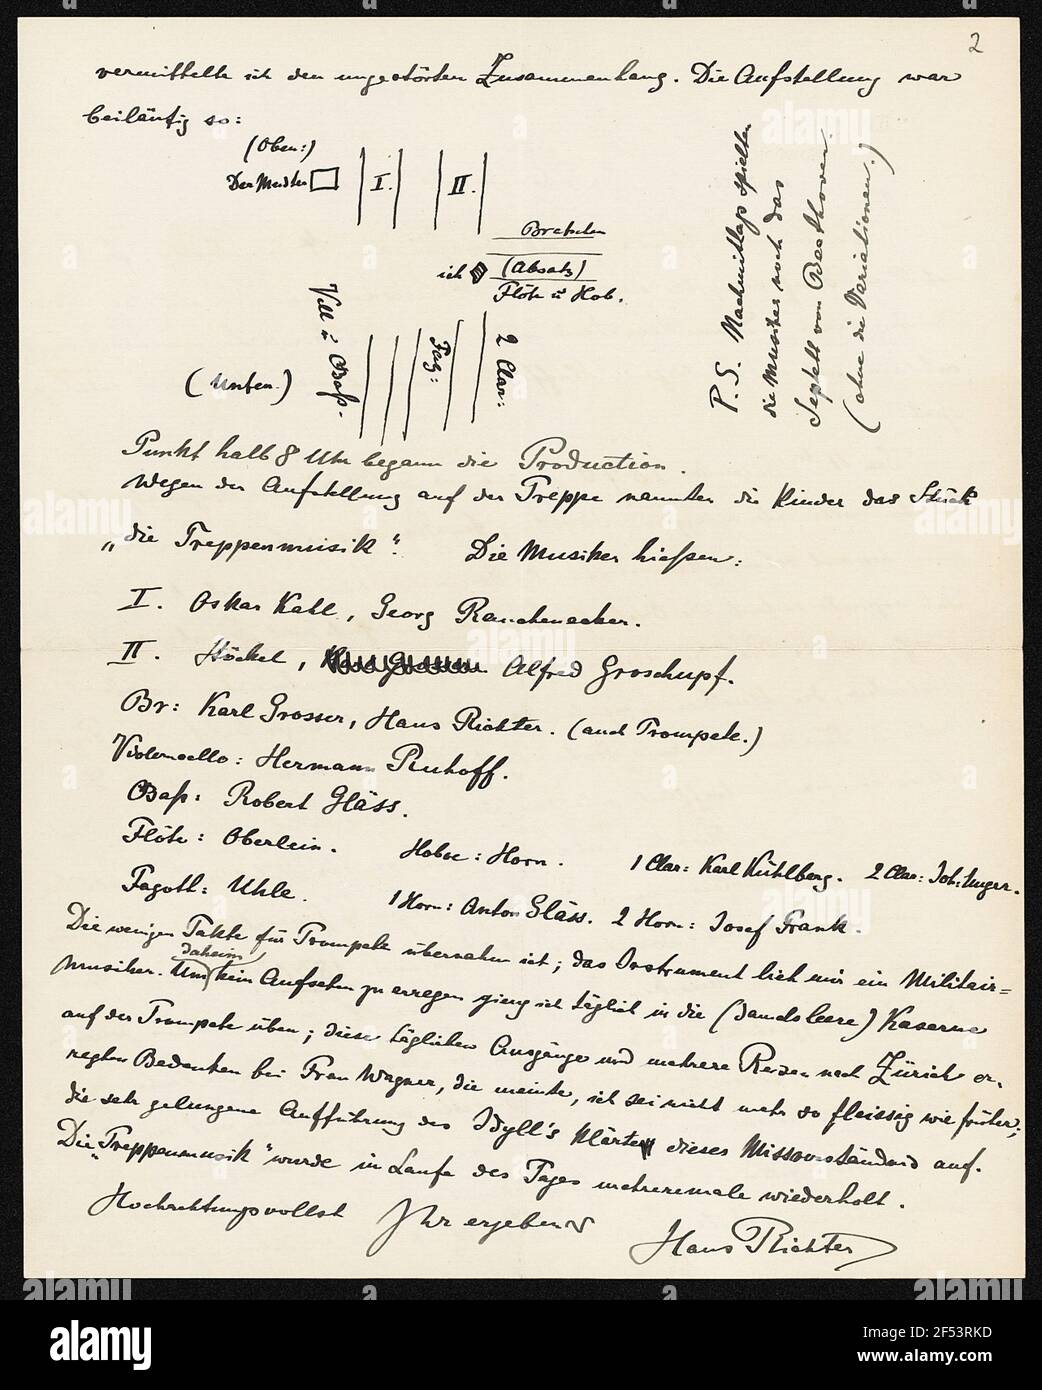 2
vermittelte ich den ungestörten Zusammenhang. Die Aufstellung war
beiläufig so:
(Oben:)
Der Meister I. II.
Bratschen
ich (Absatz)
Flöte u Hob.
Vcll u Bass.
Fag:
2 Clar:
(Unten.)
P.S. Nachmittags spielten
die Musiker noch das
Septett von Beethoven.
(ohne die Variationen.)
Punkt halb 8 Uhr begann die Production.
Wegen der Aufstellung auf der Treppe nannten die Kinder das Stück
„die Treppenmusik“. Die Musiker hießen:
I. Oskar Kahl, Georg Rauchenecker.
II. Höckel, Alfred Groschupf.
Br: Karl Grosser, Hans Richter. (auch Trompete.)
Violoncello: Hermann Ruhoff.
Baß: Robert Gläss.
Flöte: Oberlein. Hoboe: Horn. 1 Clar: Karl Kühlberg. 2 Clar: Joh: Unger.
Fagott: Uhle. 1 Horn: Anton Gläss. 2 Horn: Josef Frank.
Die wenigen Takte für Trompete übernahm ich; das Instrument lieh mir ein Militair=
musiker. Um daheim kein Aufsehen zu erregen ging ich täglich in die (damals leere) Kaserne
auf der Trompete üben; diese täglichen Ausgänge und mehrere Reisen nach Zürich er-
regten Bedenken bei Frau Wagner, die meinte, ich sei nicht mehr so fleissig wie früher;
die sehr gelungene Aufführung des Idyll's klärte dieses Missverständnis auf.
Die „Treppenmusik“ wurde im Laufe des Tages mehreremale wiederholt.
Hochachtungsvollst Ihr ergebener
Hans Richter
alamy
a
alamy
Image ID: 2F53RKD
www.alamy.com